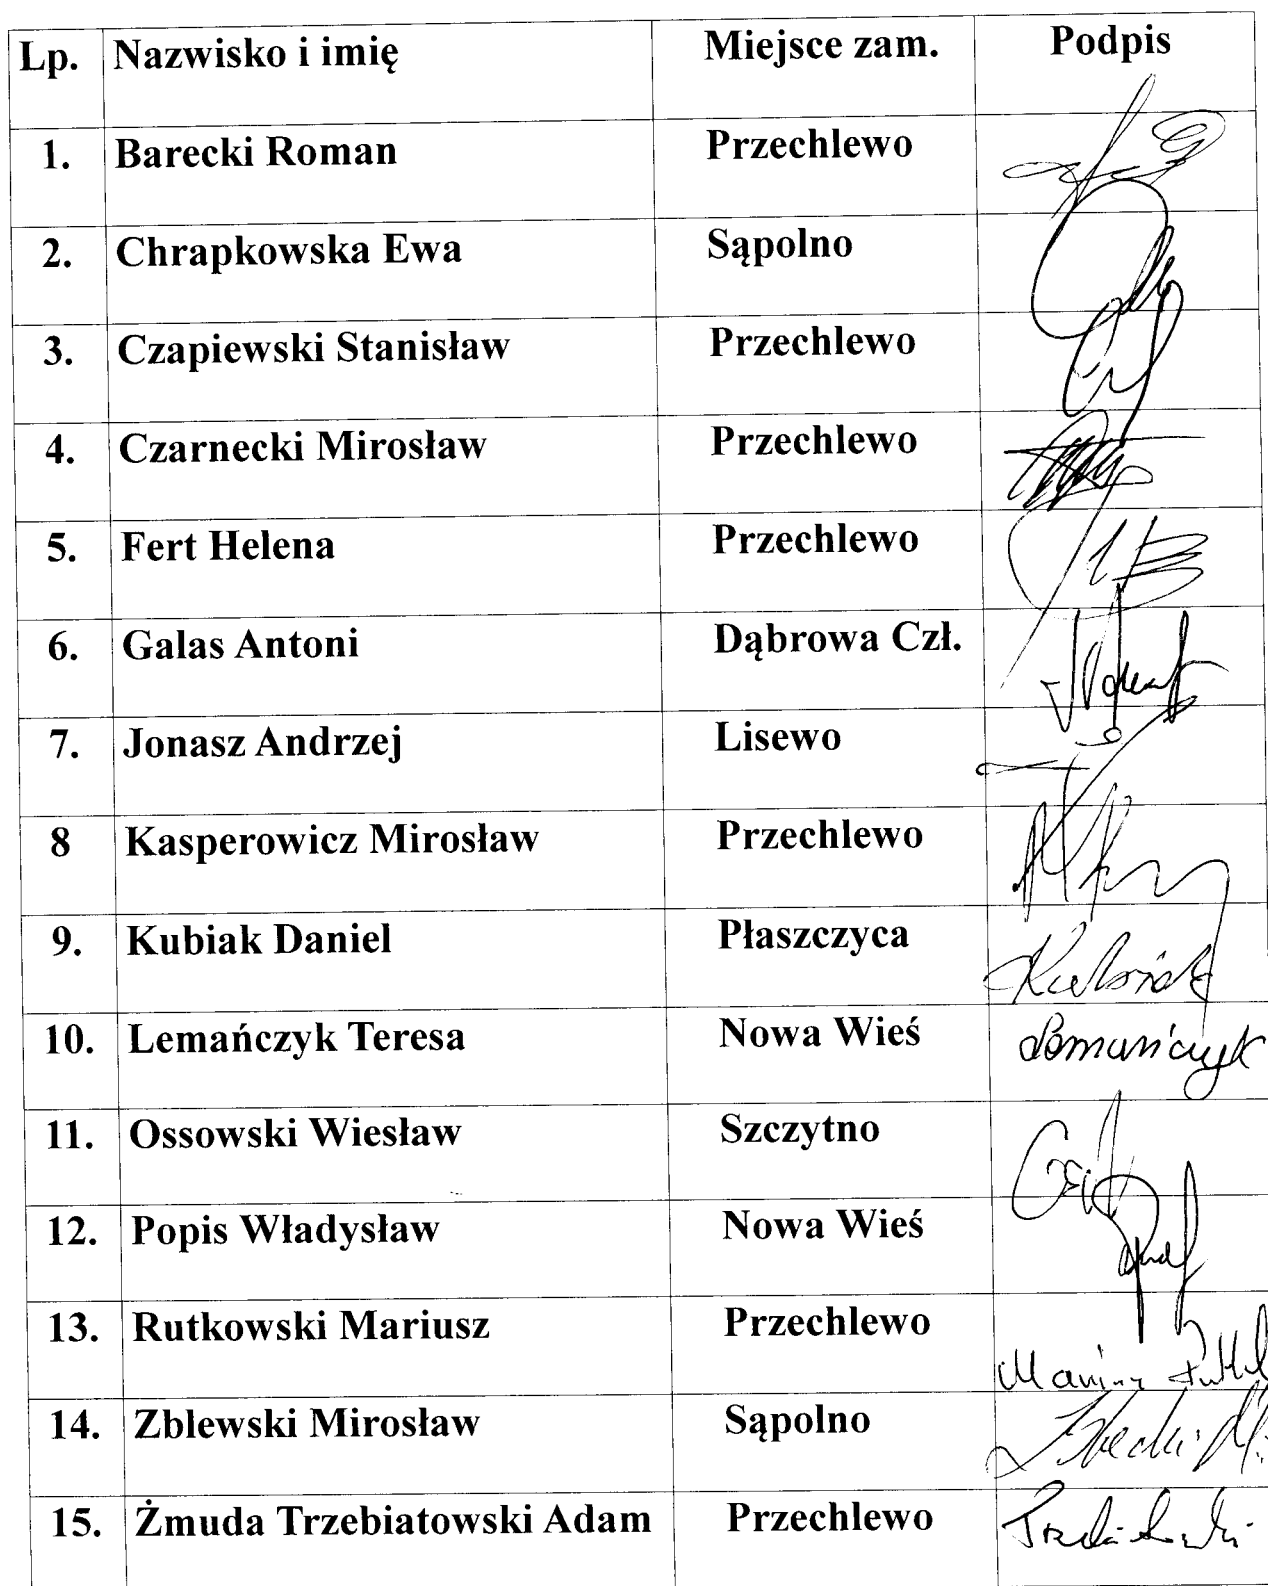 Lp. Nazwisko i imię Miejsce zam. Podpis
1. Barecki Roman Przechlewo
2. Chrapkowska Ewa Sąpolno
3. Czapiewski Stanisław Przechlewo
4. Czarnecki Mirosław Przechlewo
5. Fert Helena Przechlewo
6. Galas Antoni Dąbrowa Czł.
7. Jonasz Andrzej Lisewo
8 Kasperowicz Mirosław Przechlewo
9. Kubiak Daniel Płaszczyca Kubiak
10. Lemańczyk Teresa Nowa Wieś Lemańczyk
11. Ossowski Wiesław Szczytno
12. Popis Władysław Nowa Wieś
13. Rutkowski Mariusz Przechlewo Mariusz
14. Zblewski Mirosław Sąpolno
15. Żmuda Trzebiatowski Adam Przechlewo